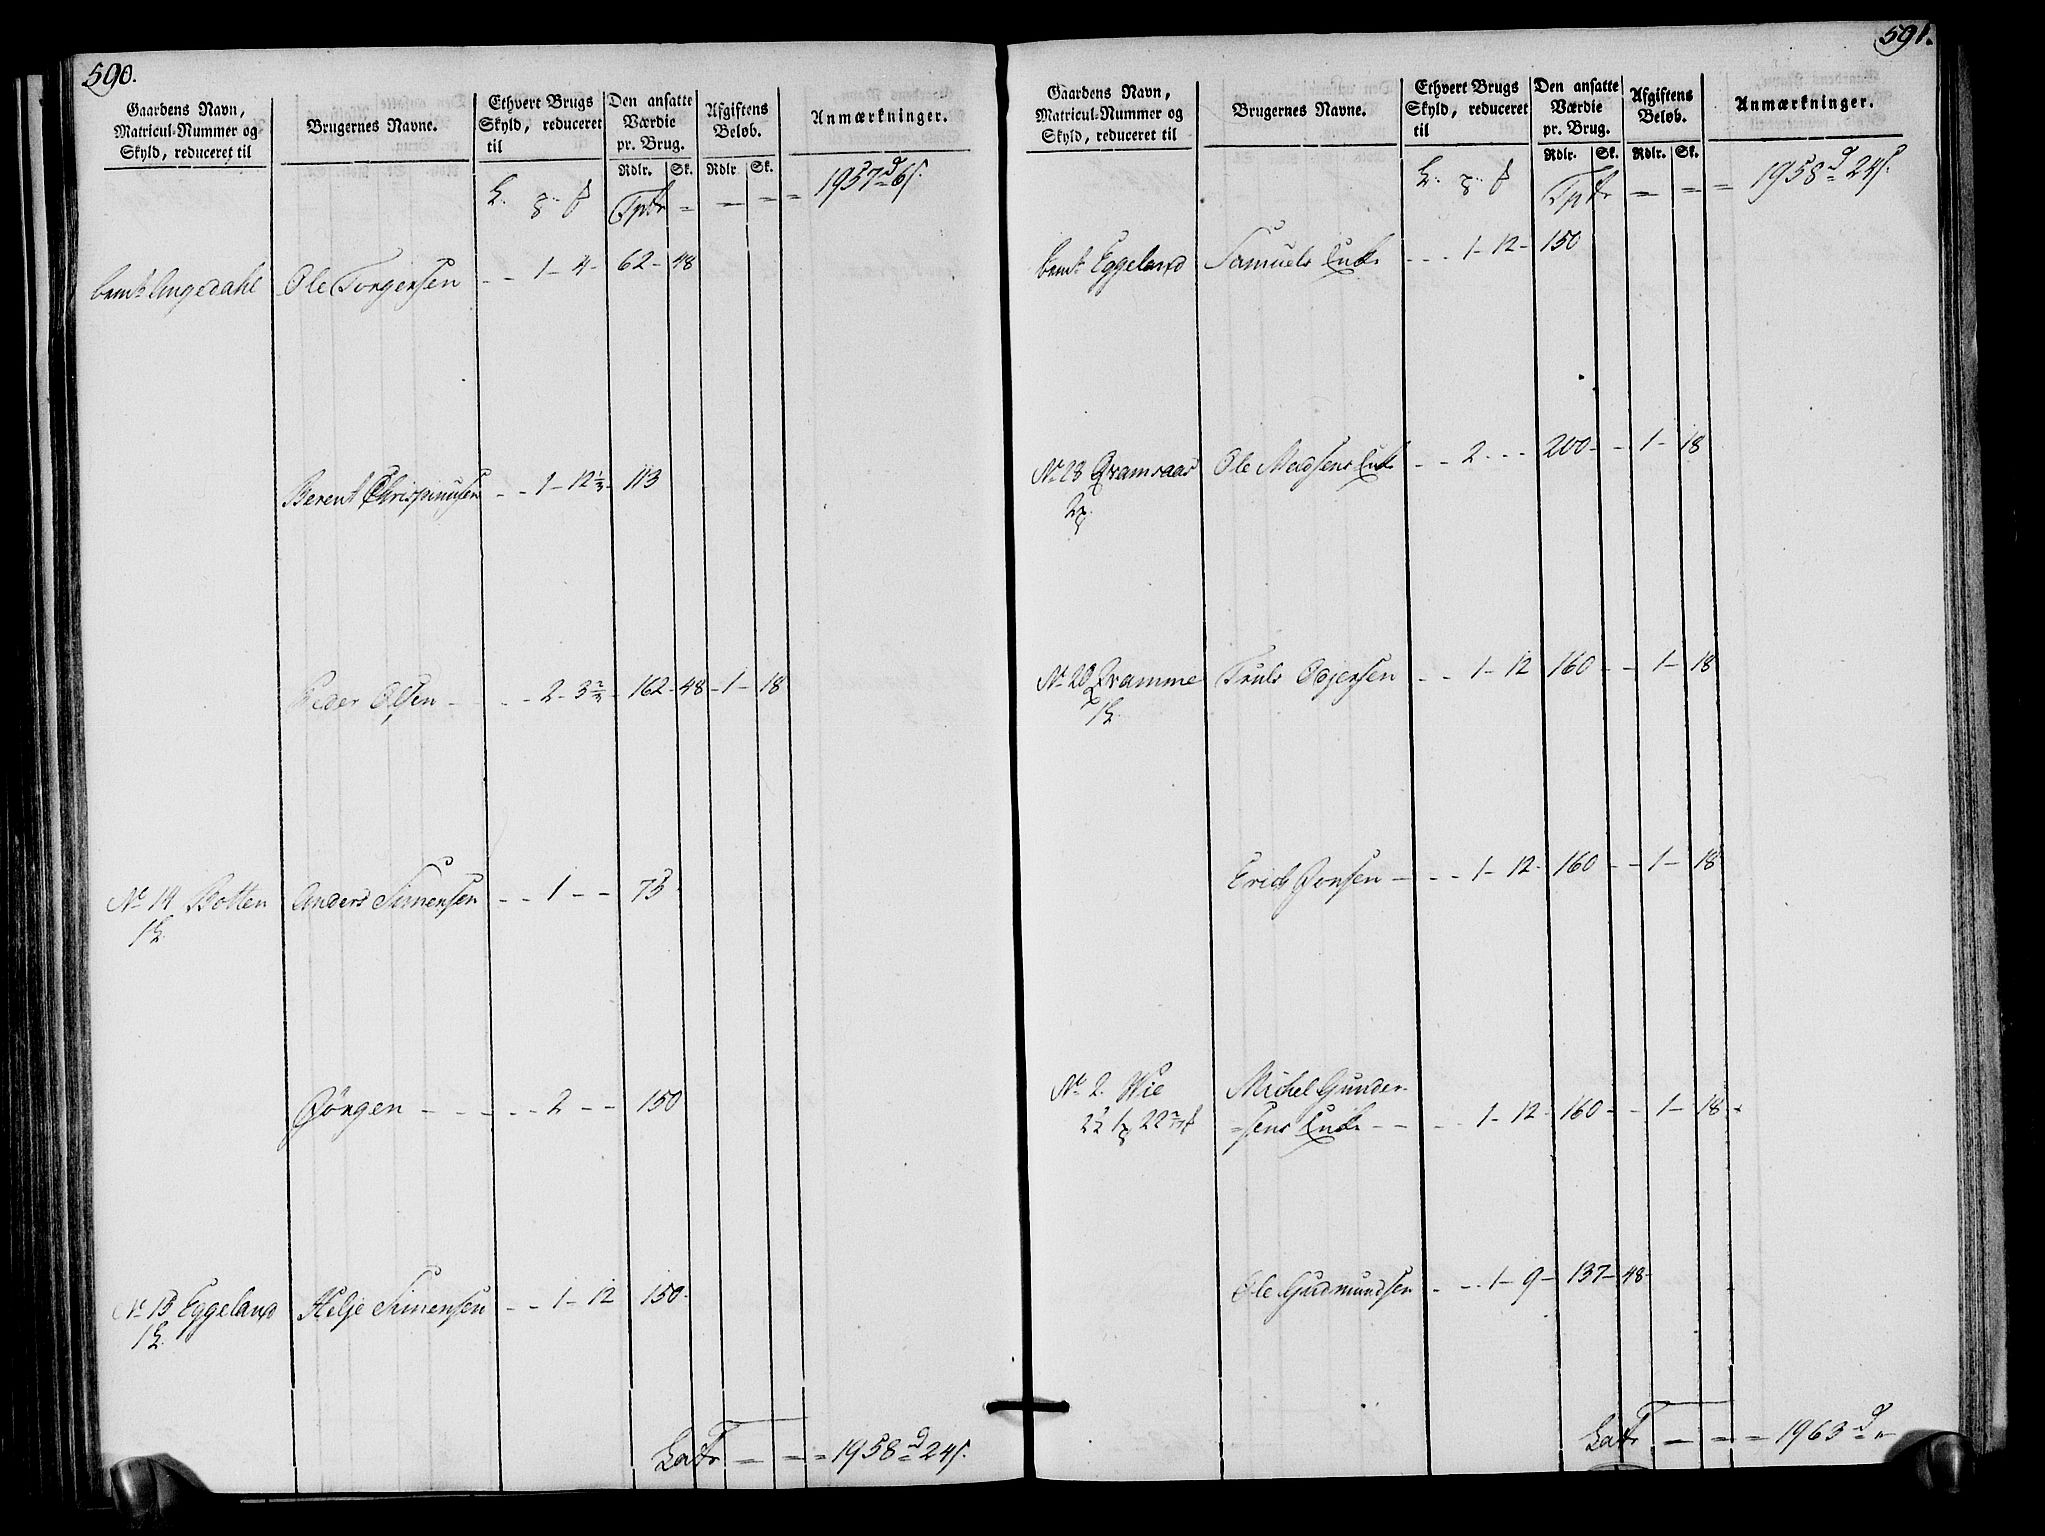 590.
Gaardens Navn,
Matricul-Nummer og
Skyld, reduceret til
Brugernes Navne.
Ethvert Brugs
Skyld, reduceret
til
Den ansatte
Værdie
pr. Brug.
Rdlr. Sk.
Afgiftens
Beløb.
Rdlr. Sk.
Anmærkninger.
Tptr = = = = 1957 d 6 s.
Ole Torgersen - - 1 - 4 - 62 - 48
Berent - - 1 - 12 1/3 - 113
Peder Olsen - - - 2 - 3 2/3 - 162 - 48 - 1 - 18
No 14 Botten Anders Simensen - - 1 - - 75
Jörgen - - - - - 2 - - 150
No 15 Eggeland Helje Simensen - - 1 - 12 150 -
Latr = = = 1958 d 24 s.
591.
Gaardens Navn,
Matricul-Nummer og
Skyld, reduceret til
Brugernes Navne.
Ethvert Brugs
Skyld, reduceret
til
Den ansatte
Værdie
pr. Brug.
Rdlr. Sk.
Afgiftens
Beløb.
Rdlr. Sk.
Anmærkninger.
Tptr = = = 1958 d 24 s.
Eggeland Samuels Enke - - - 1 - 12 - 150
Ole Madsens Enke - - 2 - - - 200 - - 1 - 18
Qvamme Truls - - 1 - 12 160 - - 1 - 18
Erich Jonsen - - - 1 - 12 - 160 - - 1 - 18
No 2. Wie Michel Gunder-
=sens Enke - - - 1 - 12 - 160 - - 1 - 18 -
Ole Gudmundsen - - - 1 - 9 - 137 - 48 -
Latr = = = 1963 d =